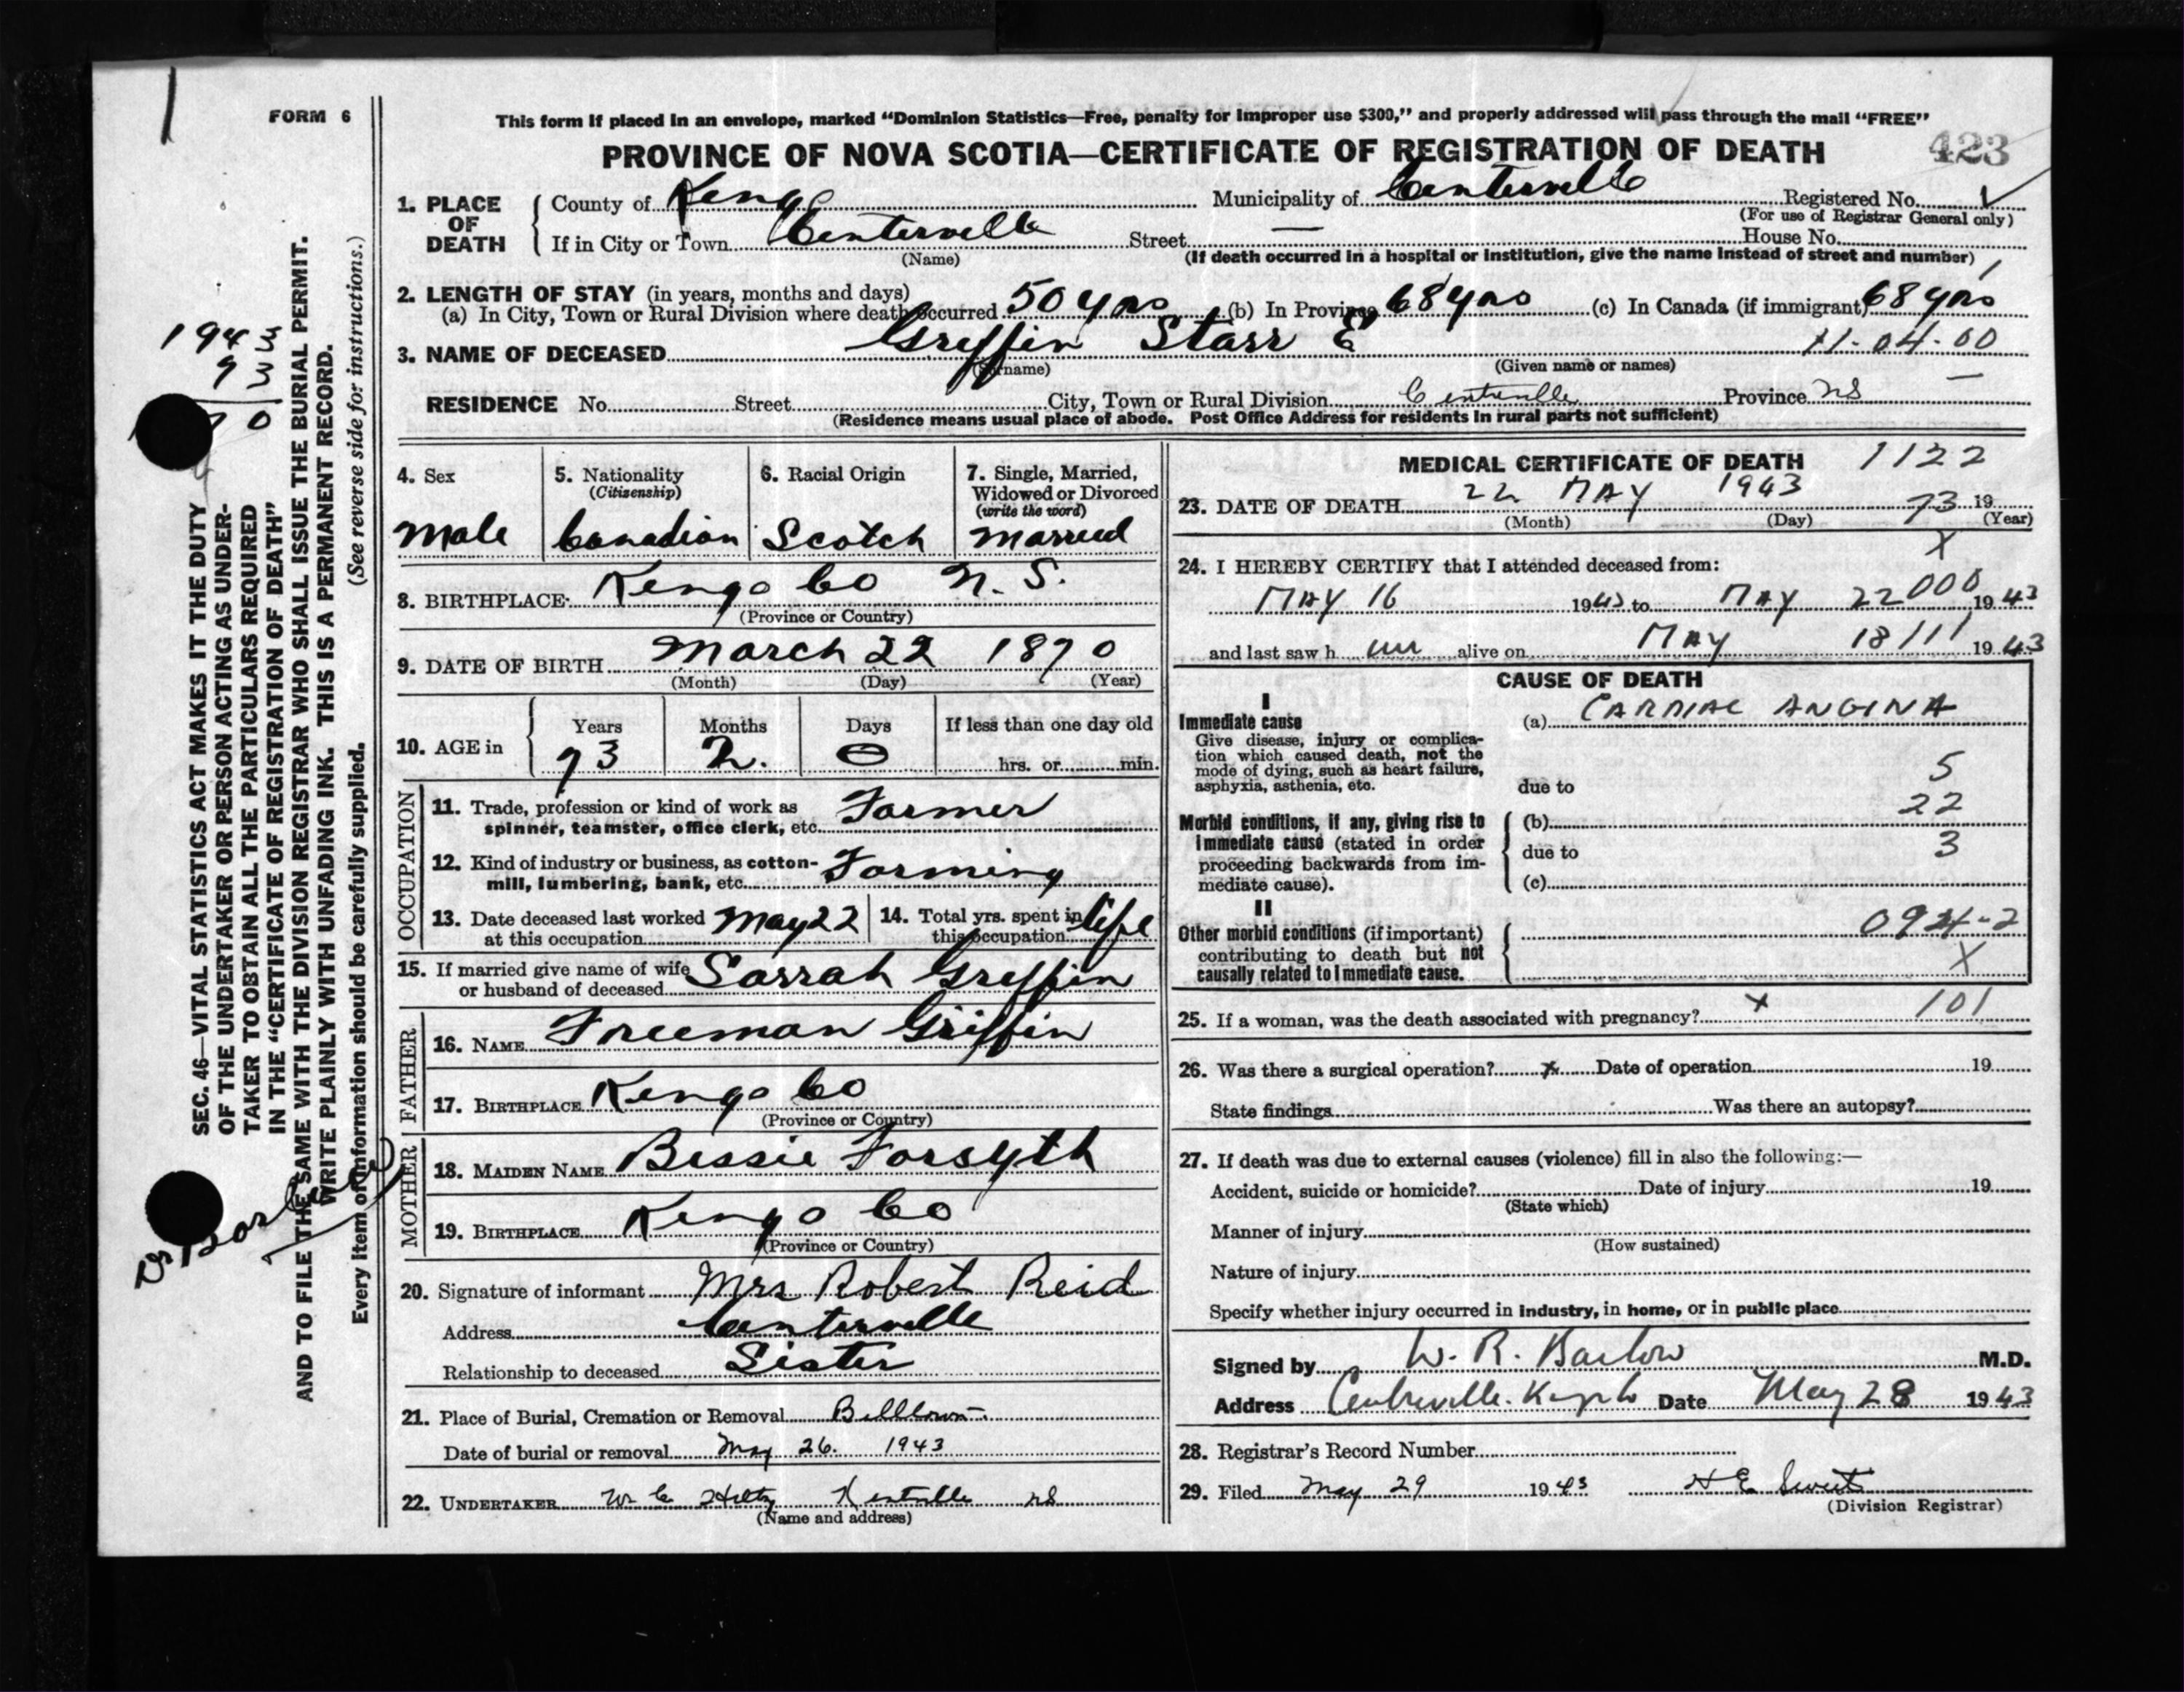 1
FORM 6
This form if placed in an envelope, marked “Dominion Statistics—Free, penalty for improper use $300,” and properly addressed will pass through the mail “FREE”
PROVINCE OF NOVA SCOTIA—CERTIFICATE OF REGISTRATION OF DEATH 423
1. PLACE OF DEATH
County of Kings Municipality of Centerville Registered No.
(For use of Registrar General only)
If in City or Town Centerville Street — House No.
(Name) (If death occurred in a hospital or institution, give the name instead of street and number)
2. LENGTH OF STAY (in years, months and days)
(a) In City, Town or Rural Division where death occurred 50 yrs (b) In Province 68 yrs (c) In Canada (if immigrant) 68 yrs
3. NAME OF DECEASED Griffin Starr E 11-04-00
(Surname) (Given name or names)
RESIDENCE No. Street City, Town or Rural Division Centreville Province NS
(Residence means usual place of abode. Post Office Address for residents in rural parts not sufficient)
4. Sex 5. Nationality (Citizenship) 6. Racial Origin 7. Single, Married, Widowed or Divorced (write the word)
Male Canadian Scotch Married
8. BIRTHPLACE Kings Co N.S.
(Province or Country)
9. DATE OF BIRTH March 22 1870
(Month) (Day) (Year)
10. AGE in Years Months Days If less than one day old
73 2. 0 hrs. or min.
OCCUPATION
11. Trade, profession or kind of work as
spinner, teamster, office clerk, etc. Farmer
12. Kind of industry or business, as cotton-
mill, lumbering, bank, etc. Farming
13. Date deceased last worked at this occupation May 22 14. Total yrs. spent in this occupation life
15. If married give name of wife
or husband of deceased Sarrah Griffin
FATHER
16. NAME Freeman Griffin
17. BIRTHPLACE Kings Co
(Province or Country)
MOTHER
18. MAIDEN NAME Bessie Forsyth
19. BIRTHPLACE Kings Co
(Province or Country)
20. Signature of informant Mrs Robert Reid
Address Centerville
Relationship to deceased Sister
21. Place of Burial, Cremation or Removal Billtown
Date of burial or removal May 26. 1943
22. UNDERTAKER W C Hiltz Kentville NS
(Name and address)
MEDICAL CERTIFICATE OF DEATH 1122
23. DATE OF DEATH 22 MAY 1943 73 19
(Month) (Day) (Year)
X
24. I HEREBY CERTIFY that I attended deceased from:
MAY 16 1943 to MAY 22 000 1943
and last saw h im alive on MAY 18 111 1943
CAUSE OF DEATH
I
Immediate cause (a) CARDIAC ANGINA
Give disease, injury or complica-
tion which caused death, not the
mode of dying, such as heart failure,
asphyxia, asthenia, etc. due to
5
22
3
Morbid conditions, if any, giving rise to (b)
immediate cause (stated in order due to
proceeding backwards from im-
mediate cause). (c)
II
Other morbid conditions (if important) 094-2
contributing to death but not
causally related to immediate cause. X
25. If a woman, was the death associated with pregnancy? x 101
26. Was there a surgical operation? x Date of operation 19
State findings Was there an autopsy?
27. If death was due to external causes (violence) fill in also the following:—
Accident, suicide or homicide? Date of injury 19
(State which)
Manner of injury
(How sustained)
Nature of injury
Specify whether injury occurred in industry, in home, or in public place
Signed by W. R. Barlow M.D.
Address Centreville. Kings Co Date May 28 1943
28. Registrar's Record Number
29. Filed May 29 1943 H E Swett
(Division Registrar)
SEC. 46—VITAL STATISTICS ACT MAKES IT THE DUTY
OF THE UNDERTAKER OR PERSON ACTING AS UNDER-
TAKER TO OBTAIN ALL THE PARTICULARS REQUIRED
IN THE “CERTIFICATE OF REGISTRATION OF DEATH”
AND TO FILE THE SAME WITH THE DIVISION REGISTRAR WHO SHALL ISSUE THE BURIAL PERMIT.
WRITE PLAINLY WITH UNFADING INK. THIS IS A PERMANENT RECORD.
Every item of information should be carefully supplied. (See reverse side for instructions.)